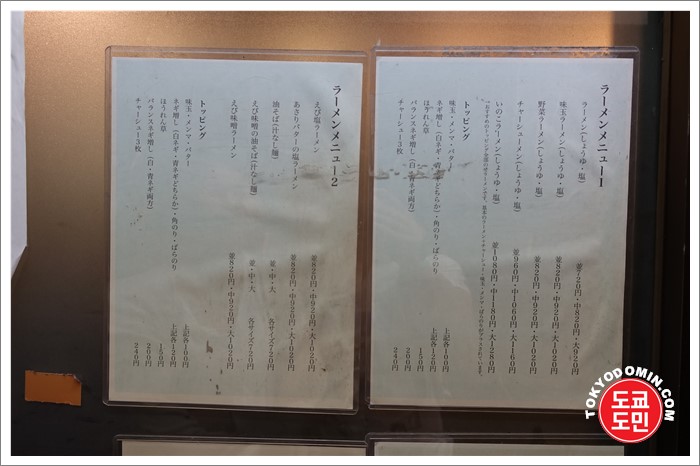 ラーメンメニュー1
ラーメン(しょうゆ・塩) 並720円・中820円・大920円
味玉ラーメン(しょうゆ・塩) 並820円・中920円・大1020円
野菜ラーメン(しょうゆ・塩) 並820円・中920円・大1020円
チャーシューメン(しょうゆ・塩) 並960円・中1060円・大1160円
いのこラーメン(しょうゆ・塩) 並1080円・中1180円・大1280円
トッピング
味玉・メンマ・バター 上記各100円
ネギ増し(白ネギ・青ネギどちらか)・角のり・ばらのり 上記各120円
ほうれん草 150円
バランスネギ増し(白・青ネギ両方) 200円
チャーシュー3枚 240円
ラーメンメニュー2
えび塩ラーメン 並820円・中920円・大1020円
あさりバターの塩ラーメン 並820円・中920円・大1020円
油そば(汁なし麺) 並・中・大 各サイズ720円
えび味噌の油そば(汁なし麺) 並・中・大 各サイズ720円
えび味噌ラーメン 並820円・中920円・大1020円
トッピング
味玉・メンマ・バター 上記各100円
ネギ増し(白ネギ・青ネギどちらか)・角のり・ばらのり 上記各120円
ほうれん草 150円
バランスネギ増し(白・青ネギ両方) 200円
チャーシュー3枚 240円
도쿄
도민
TOKYODOMIN.COM